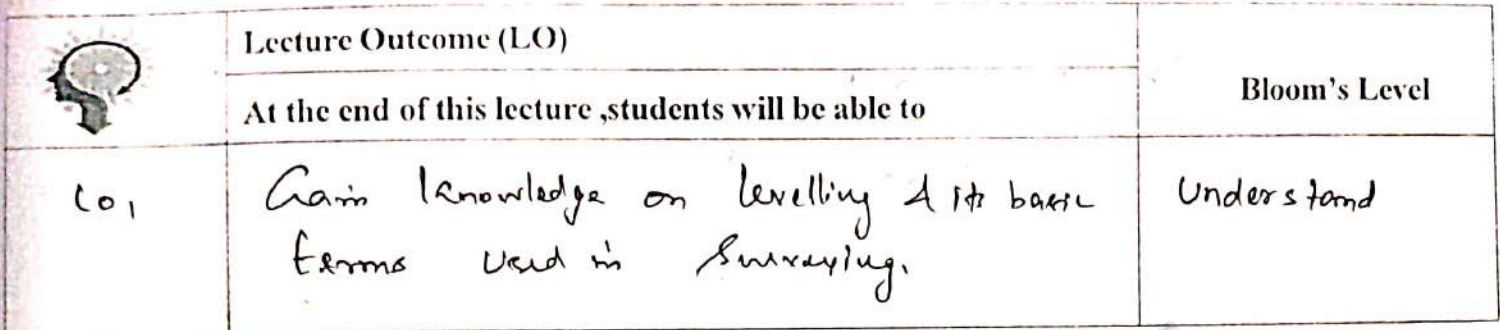 Lecture Outcome (LO)
At the end of this lecture ,students will be able to
Bloom's Level
LO1 Gain knowledge on levelling & its basic Understand
terms used in Surveying.